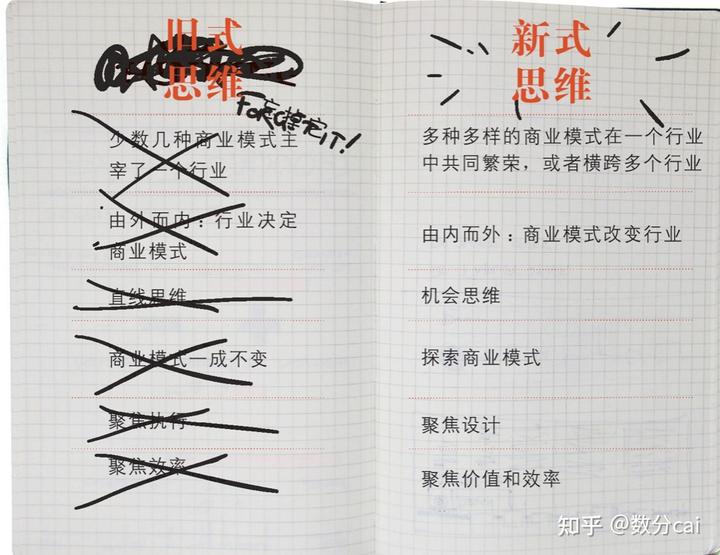 旧式
思维
少数几种商业模式主
宰了一个行业
由外而内：行业决定
商业模式
直线思维
商业模式一成不变
聚焦执行
聚焦效率
新式
思维
多种多样的商业模式在一个行业
中共同繁荣，或者横跨多个行业
由内而外：商业模式改变行业
机会思维
探索商业模式
聚焦设计
聚焦价值和效率
知乎 @数分cai